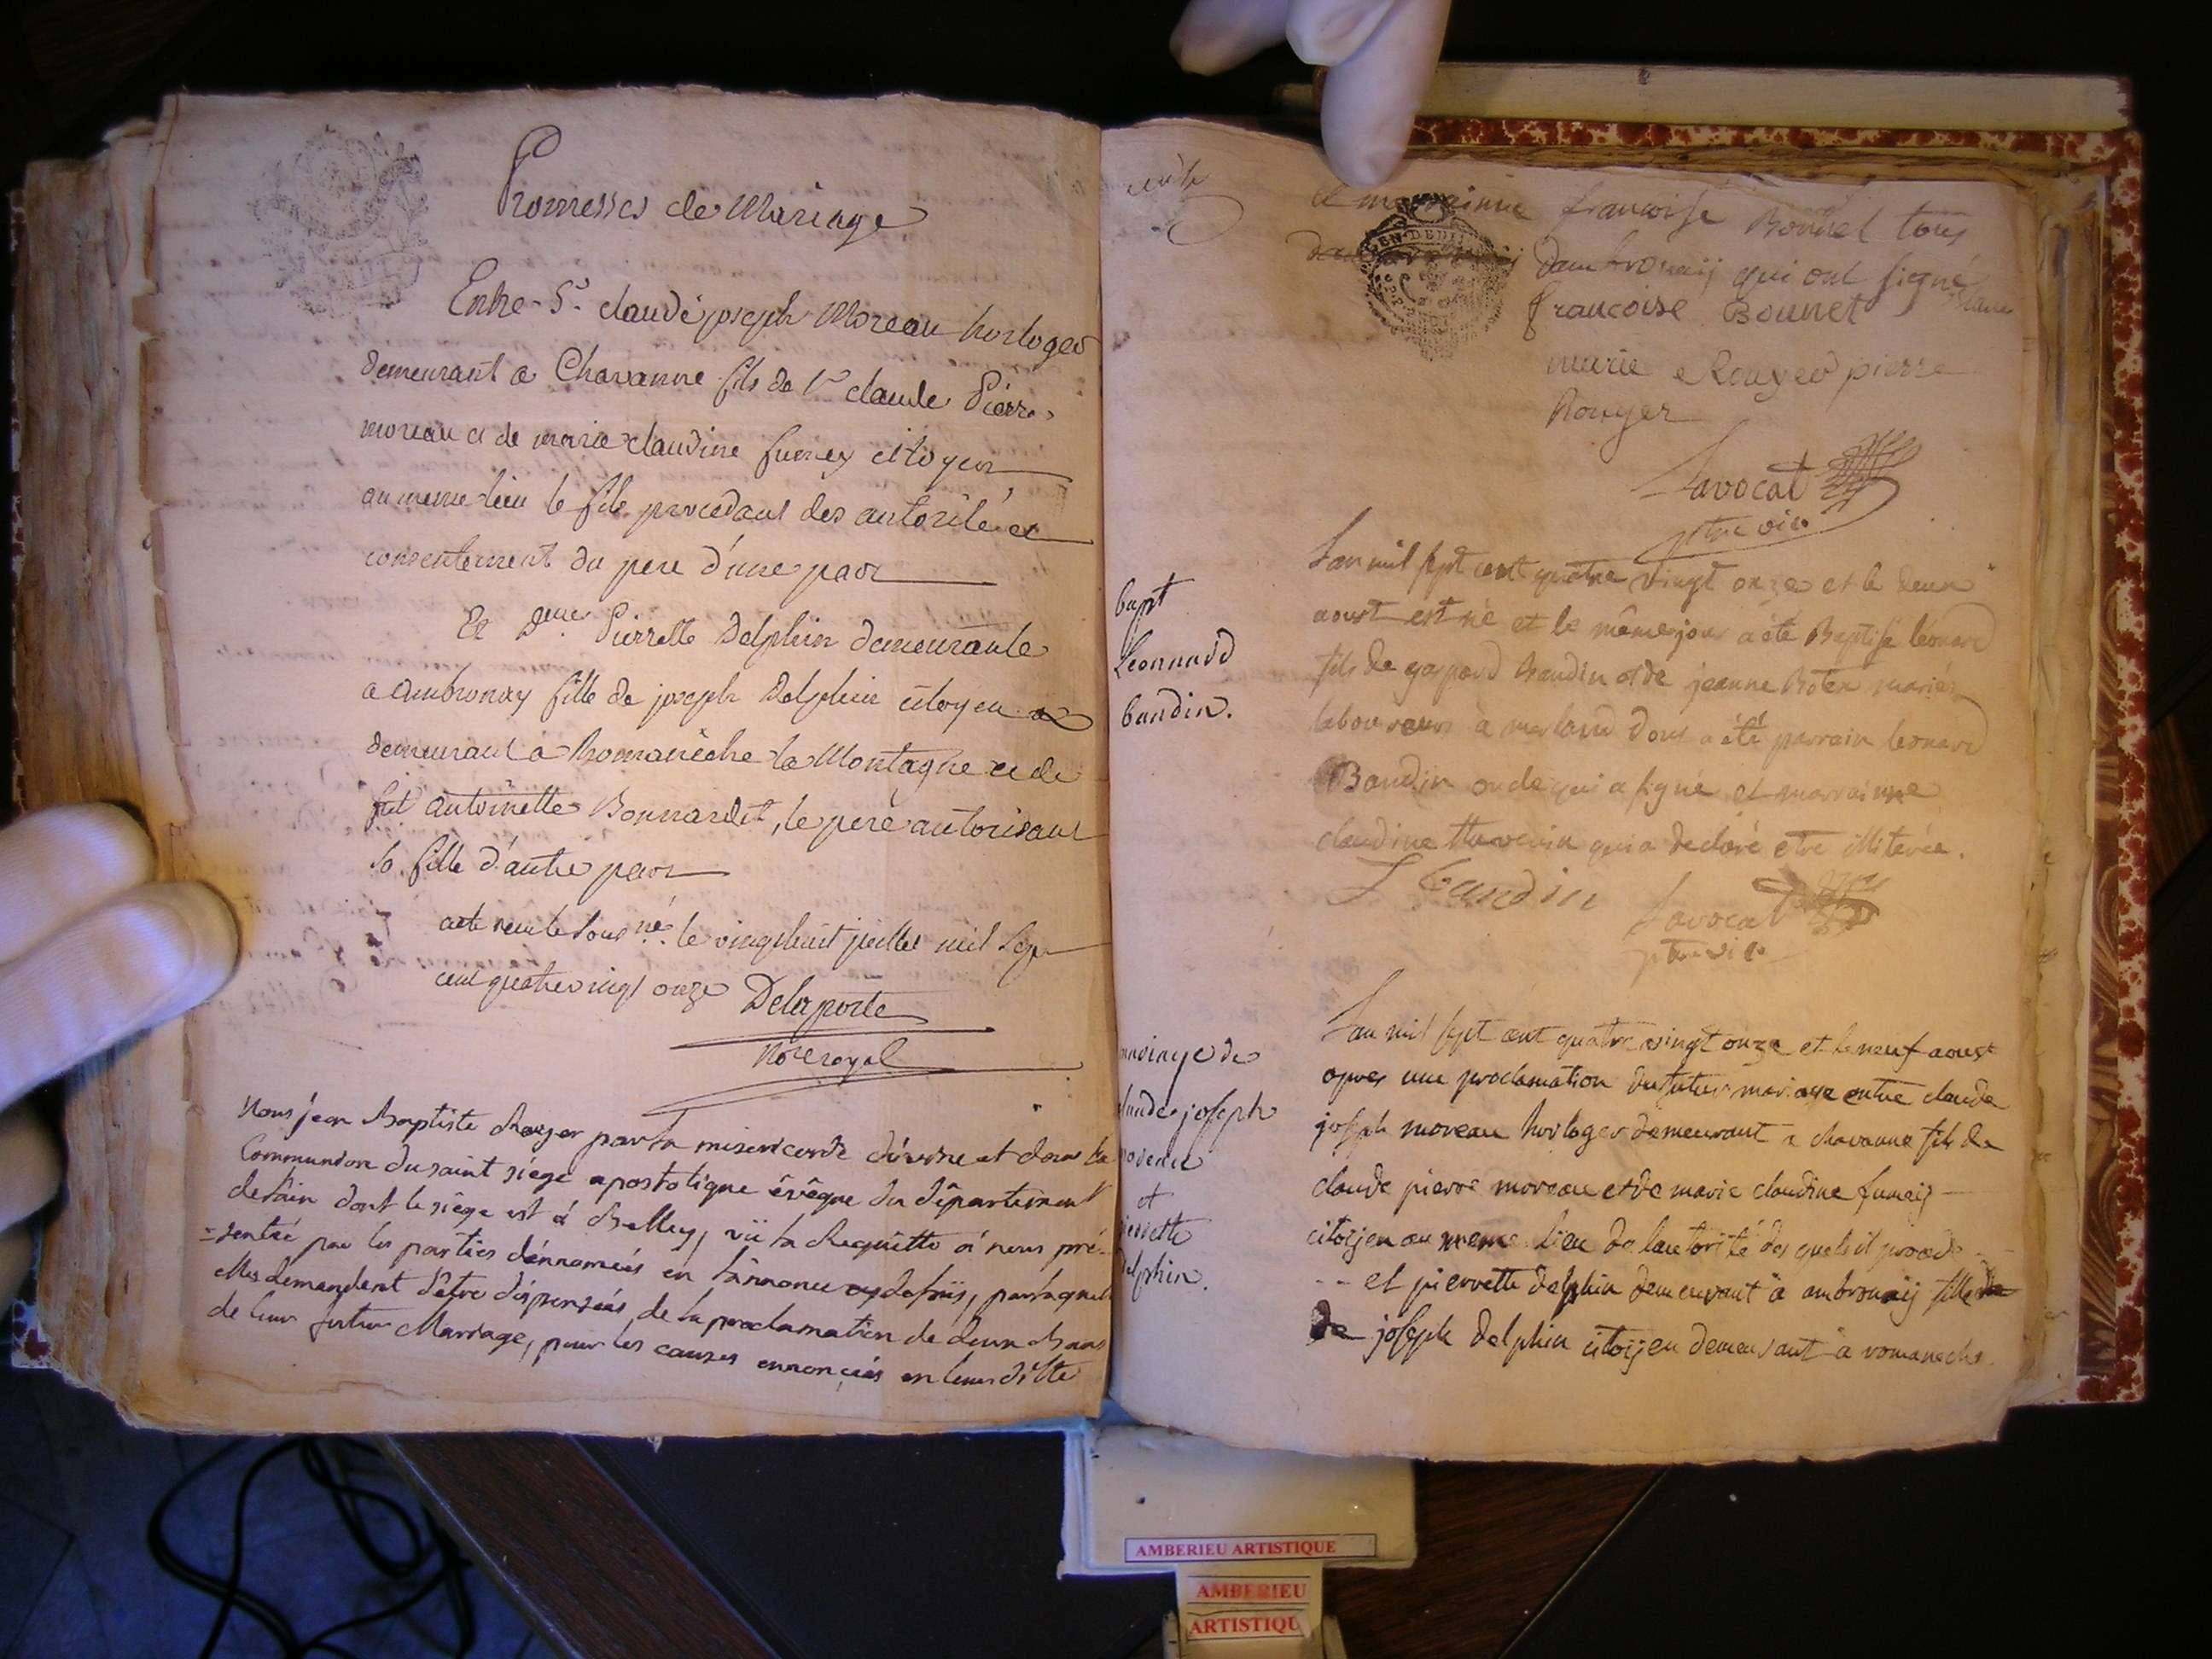 Promesses de Mariage
Entre Sr. claude joseph Moreau horloger
demeurant a Chavanne fils de Sr claude Pierre
moreau et de marie claudine fumey citoyen
au meme lieu le fils procedant des autorité et
consentement du pere d'une part
Et Dlle Pierrette Delphin demeurante
a ambronay fille de joseph Delphin citoyen
demeurant a Romanèche la Montagne et de
fut antoinette Bonnardet, le pere autorisant
sa fille d'autre part
le vingt huit juillet mil sept
cent quatre vingt onze Delaporte
Nore royal
Nous jean Baptiste Royer par la misericorde divine et dans la
Communion du saint siége apostolique évêque du département
de l'ain dont le siége est á Belley, vü la Requette á nous pré-
=sentée par les parties dénnomées en l'annonce cy dessus, par laquelle
elles demandent d'être dispensées de la proclamation de deux bans
de leur futur Mariage, pour les causes ennoncées en leur ditte
et marrainne francoise Bonnet tous
dambronaij qui ont signé
francoise Bounet
marie Rouyer pierre
Rouyer
Lavocat
ptre vic
bapt
Leonnard
baudin.
Lan mil sept cent quatre vingt onze et le deux
aoust est né et le même jour a été Baptisé léonard
fils de gaspard baudin et de jeanne mariés
laboureurs à dont a été parrain leonard
Baudin oncle qui a signé et marrainne
claudine thevenin qui a declaré etre illiterée.
L Baudin Lavocat
ptre vic
mariage de
claude joseph
moreau
et
pierrette
delphin.
Lan mil sept cent quatre vingt onze et le neuf aoust
apres une proclamation du futur mariage entre claude
joseph moreau horloger demeurant a chavanne fils de
claude pierre moreau et de marie claudine fumeij
citoijen au meme lieu de lautorité des quels il procede
-- et pierrette delphin demeurant à ambronaij fille de
de joseph delphin citoijen demeurant à romaneche
AMBERIEU ARTISTIQUE
AMBERIEU
ARTISTIQU